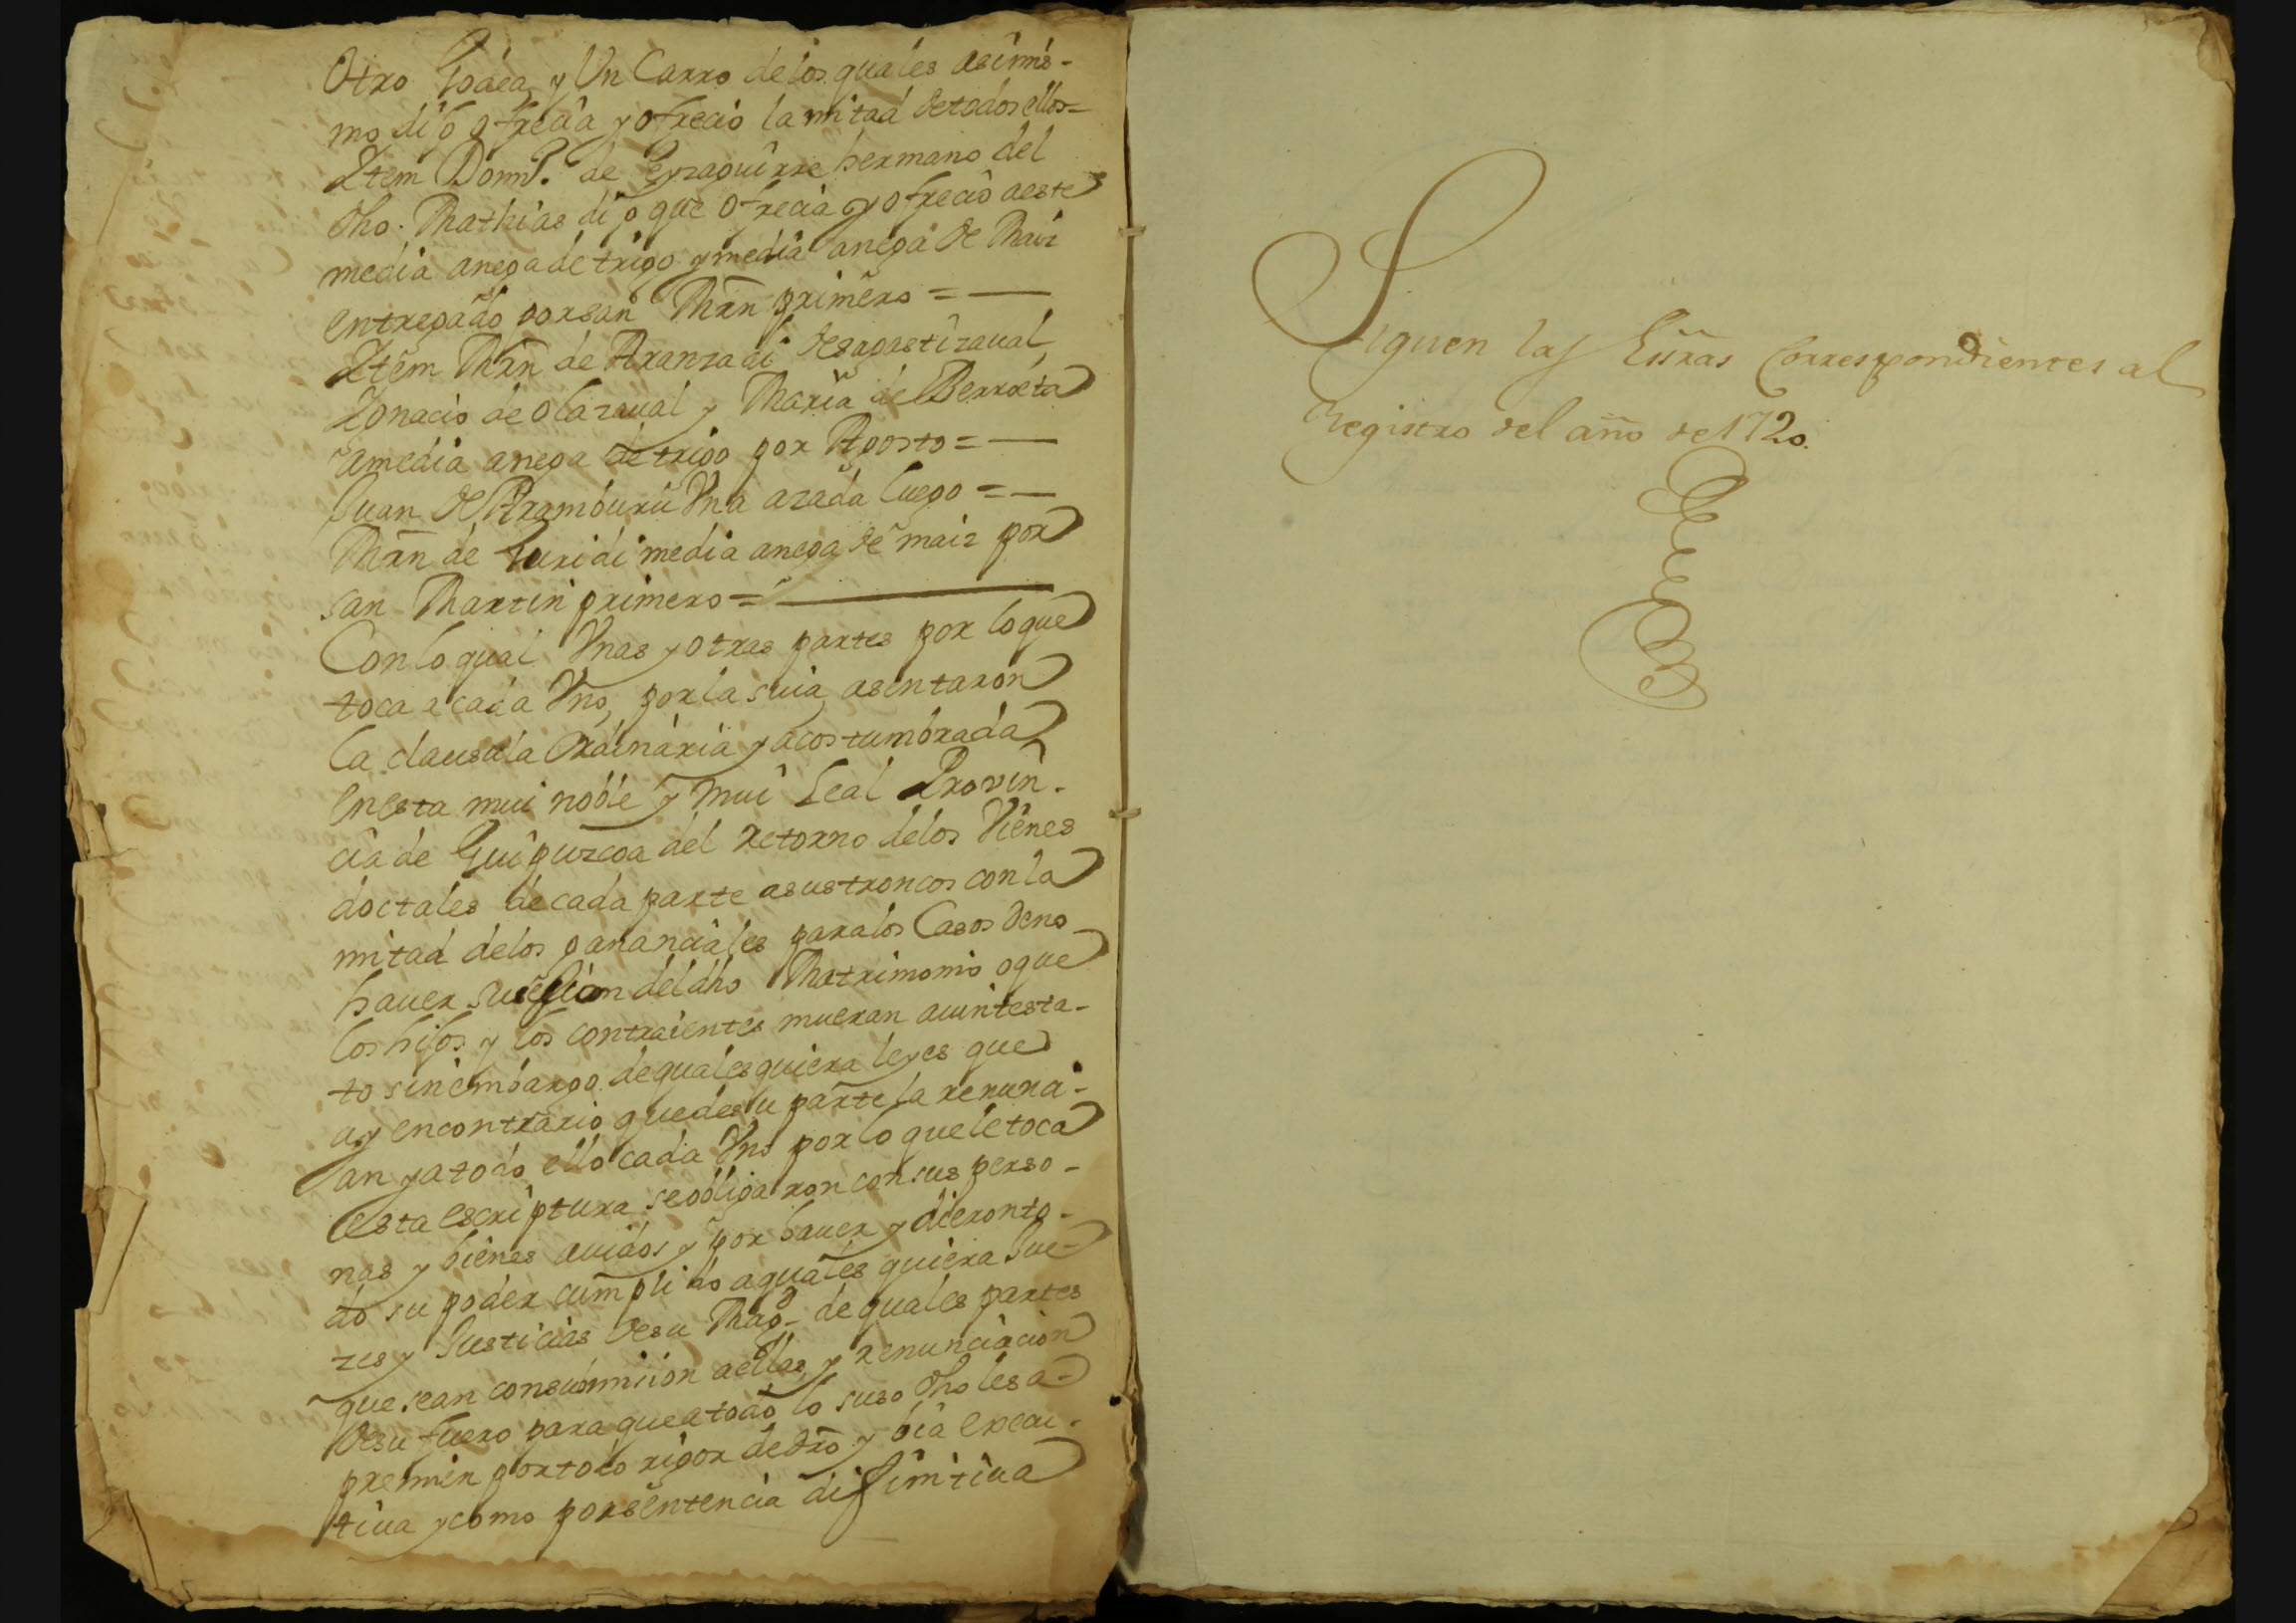 Otro Goaea, y Un Carro delos quales asimis-
mo dijo ofrecia y ofrecio la mitad de todos ellos=
Item Domn.º de Eyzaguirre hermano del
dho. Mathias dijo que ofrecia y ofrecio aeste
media anega de trigo y media anega de Maiz
entregado por san Mrn primero =
Item Mrn de Aranzadi de sagastizaval,
Ignacio de Olazaval y Maria de Berrota
amedia anega de trigo por Agosto =
Juan de Aramburu Una azada luego =
Mrn de Iuridi media anega de maiz por
san Martin primero =
Conlo qual Unas y otras partes por loque
toca acada Uno, por la suia, asentaron
la clausula Ordinaria y acostumbrada
enesta mui noble y mui Leal Provin-
cia de Guipuzcoa del Retorno delos Vienes
doctales de cada parte asus troncos conla
mitad delos gananciales para los Casos deno
hauer sucesion del dho Matrimonio oque
los hijos y los contraientes mueran auintesta-
to sinembargo de quales quiera leyes que
ay encontrario que de su parte la renunci-
an y atodo ello cada Uno por lo que le toca
esta escriptura se obligaron con sus perso-
nas y bienes auidos y por hauer y dieron to-
do su poder cumplido aquales quiera Jue-
zes y Justicias de su Magd. de quales partes
que sean consumision aellas, y renunciacion
desu fuero para que atodo lo suso dho les a-
premien por todo rigor de dro y bia execu-
tiua y como por sentencia difinitiua
Siguen las Essras Correspondientes al
Registro del año de 1720.